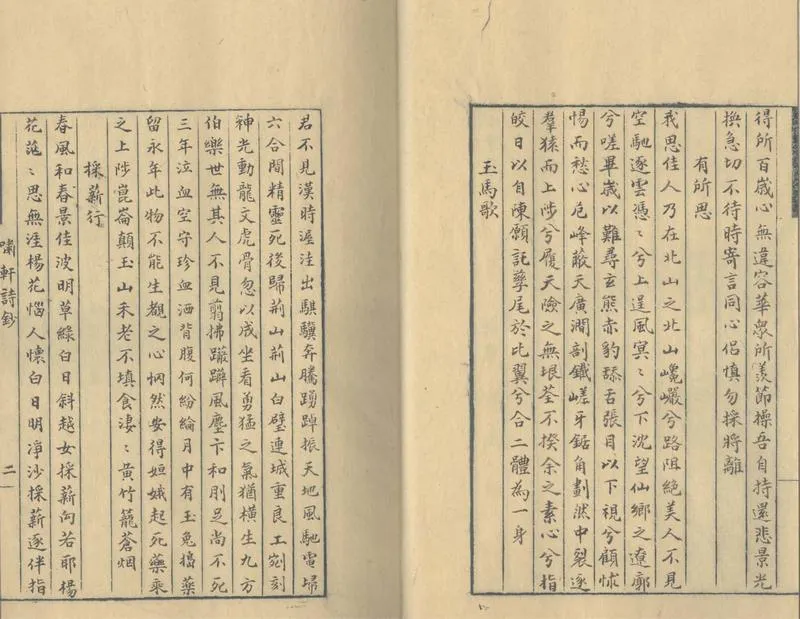 得所百歲心無違容華眾所羨節操吾自持還悲景光
換急切不待時寄言同心侶慎勿採將離
有所思
我思佳人乃在北山之北山巉巖兮路阻絕美人不見
空馳逐雲憑〻兮上逞風冥〻兮下沈望仙鄉之遼廓
兮嗟畢歲以難尋玄熊赤豹舔舌張目以下視兮顧怵
惕而愁心危峰蔽天廣澗剖鐵嵯牙鋸角劃然中裂逐
羣猿而上陟兮履天險之無垠荃不揆余之素心兮指
皎日以自陳願託孳尾於比翼兮合二體為一身
玉馬歌
君不見漢時渥洼出騏驥奔騰踴踔振天地風馳電埽
六合間精靈死後歸荆山荆山白璧連城重良工宛刻
神光動龍文虎骨忽以成坐看勇猛之氣猶橫生九方
伯樂世無其人不見翦拂躑躅風塵卞和刖足尚不死
三年泣血空守珍血洒背腹何紛綸月中有玉兔擣藥
留永年此物不能生觀之心惘然安得姮娥起死藥乘
之上陟崑崙顛玉山禾老不填食淒〻黃竹籠蒼烟
採薪行
春風和春景佳波明草綠白日斜越女採薪向若耶楊
花茫〻思無涯楊花惱人懷白日明凈沙採薪逐伴指
嘯軒詩鈔
二